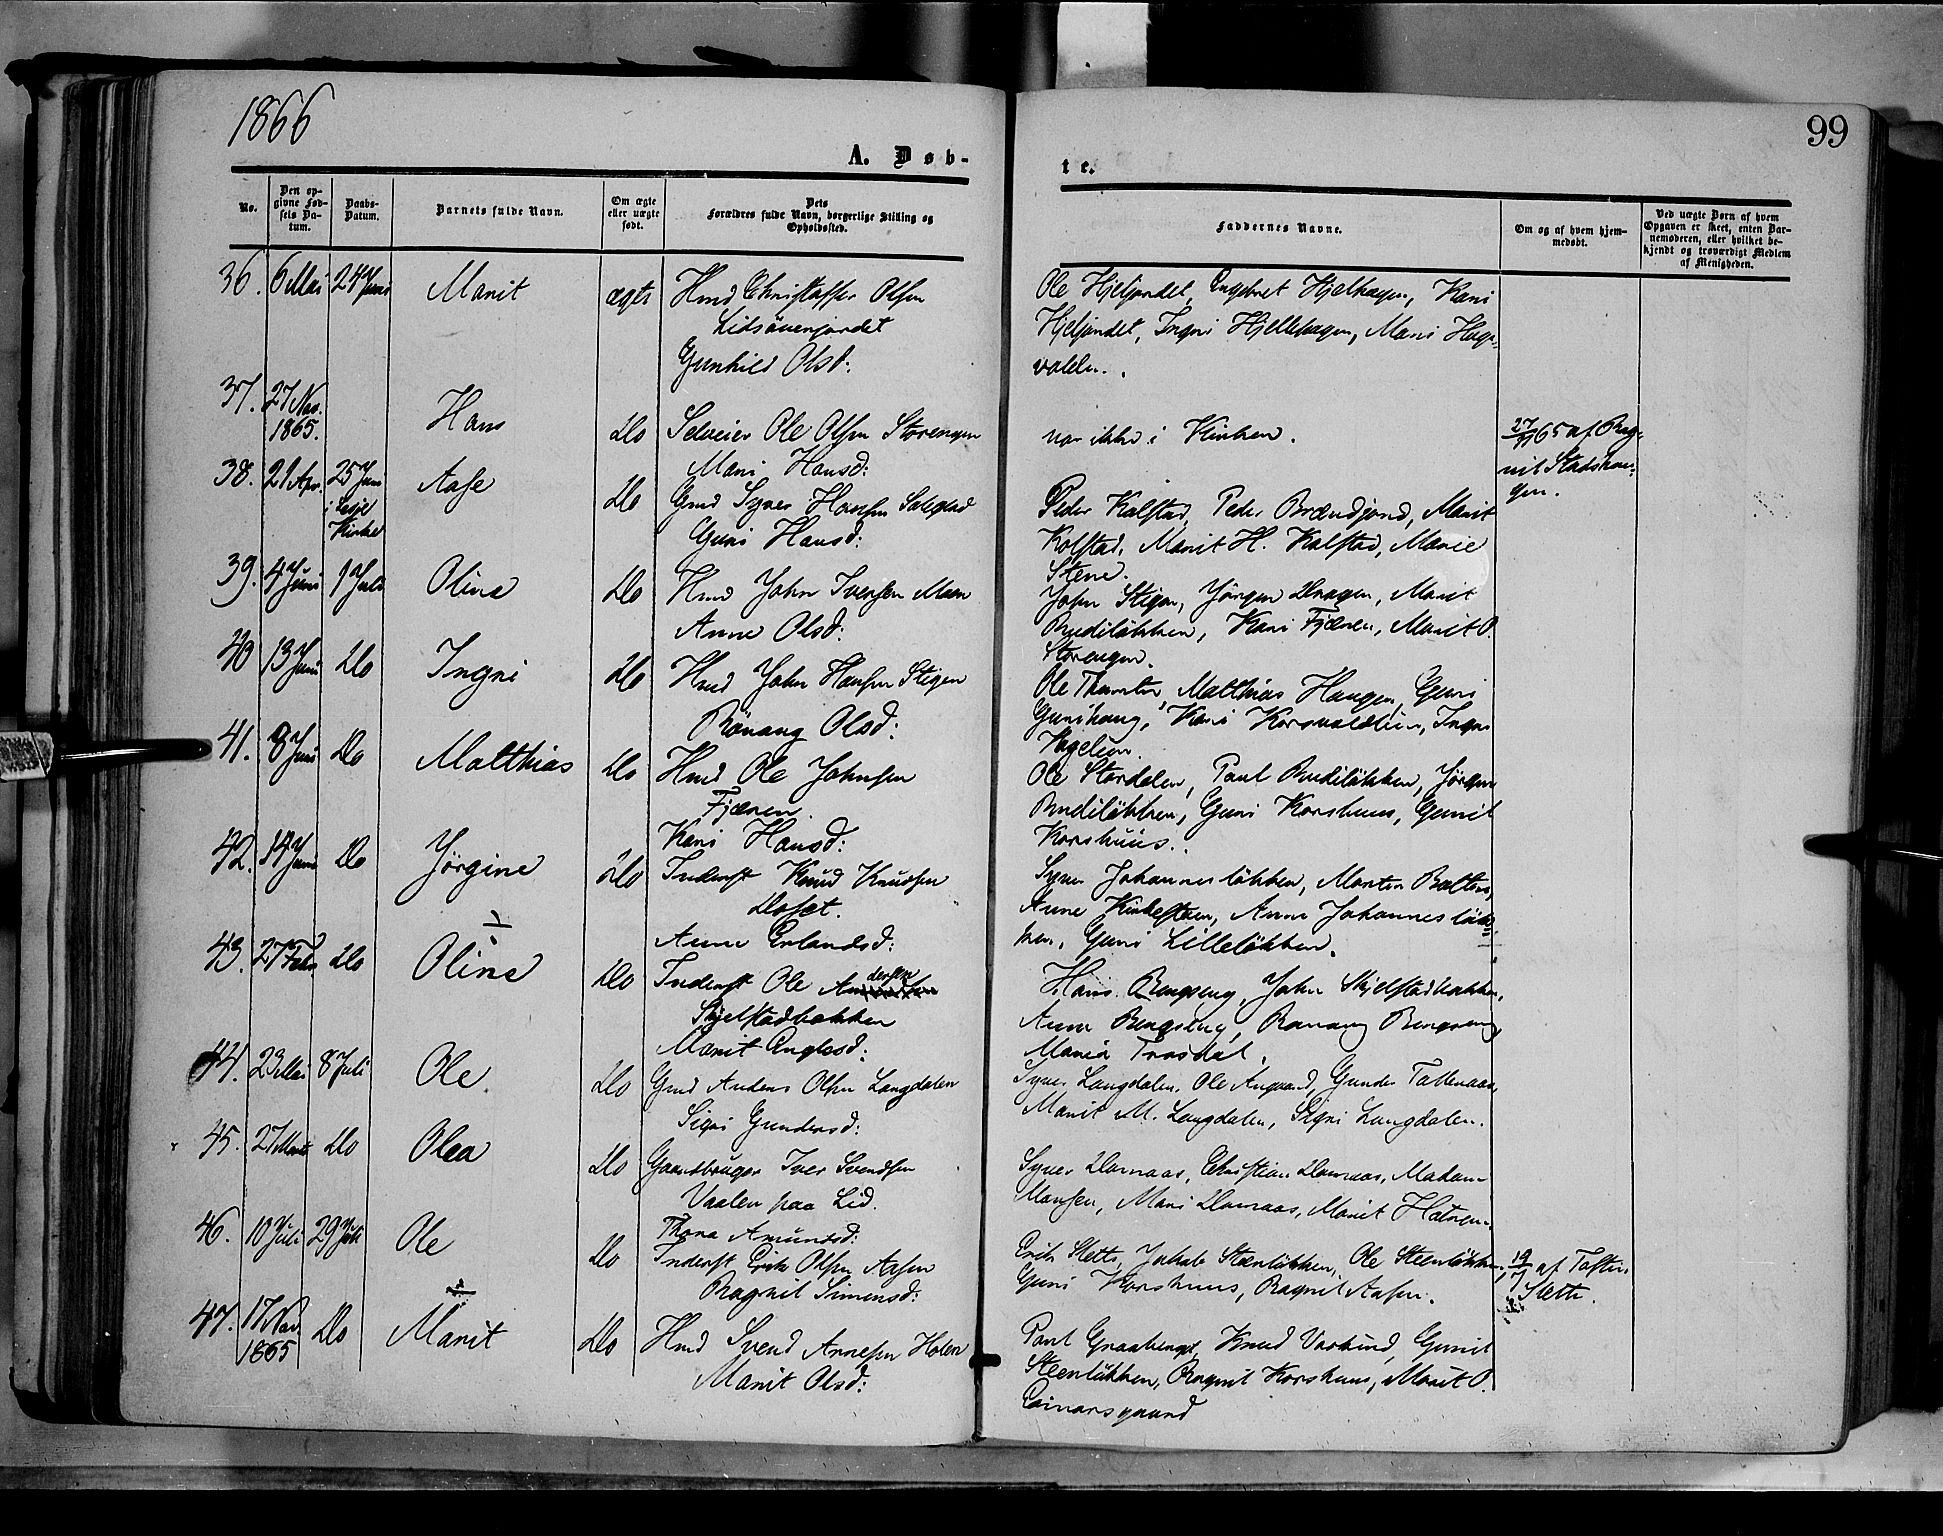 1866
99
A. Døb-
te.
No.
Den op-
givne Fød-
sels Da-
tum.
Daabs-
Datum.
Barnets fulde Navn.
Om ægte
eller uægte
født.
Dets
Forældres fulde Navn, borgerlige Stilling og
Opholdssted.
Faddernes Navne.
Om og af hvem hjem-
medøbt.
Ved uægte Børn af hvem
Opgaven er skeet, enten Bar-
nemoderen, eller hvilket be-
kjendt og troværdigt Medlem
af Menigheden.
36. 6 Mai 24 Juni Marit ægte Hmd Christopher Olsen
Gunhild Olsd:
Ole Hjeljordet, Engebret Hjelhagen, Kari
Hjeljordet, Ingri Hjellehagen, Mari Hage-
volden.
37. 27 Nov.
1865. Hans Do Selveier Ole Olsen Storengen
Mari Hansd:
var ikke i Kirken.
27/11 65 af Rag-
nil
38. 21 Apr. 25 Juni
i Lesje
Kirke Aase Do Gmd Syver Hansen
Guri Hansd:
Peder Kolstad, Peder Brændjord, Marit
Kolstad, Marit H. Kolstad, Marie
Stene.
39. 4 Juni 1 Juli Oline Do Hmd John Iversen Moen
Anne Olsd:
John Stigen, Jörgen Dragen, Marit
Budilökken, Kari Fjæren, Marit O.
Storengen.
40 13 Juni Do Ingri Do Hmd John Hansen Stigen
Rönaug Olsd:
Ole, Matthias Haugen, Guri
Gunihaug, Kari Korsvoldlien, Ingri
41. 8 Juni Do Matthias Do Hmd Ole Johnsen
Fjæren.
Kari Hansd:
Ole Stordalen, Paul Budilökken, Jörgen
Budilökken, Guri Korshuus, Gunil
Korshuus.
42. 14 Juni Do Jörgine Do Inderst Knud Knudsen
Dolset.
Anne Erlandsd:
Syver Johanneslökken, Morten
Anne Kirkestuen, Anne Johanneslök-
ken, Guri Lillelökken.
43. 27 Febr. Do Oline Do Inderst Ole Andersen
Skjelstadbakken
Marit Englesd:
Hans Bergseng, John Skjelstadbakken,
Anne Bergseng, Rönaug Bergseng
Maria
44. 23 Mai 8 Juli Ole Do Gmd Anders Olsen Langdalen
Sigri Gundersd:
Syver Langdalen, Ole Angaard, Gunder
Marit M. Langdalen, Sigri Langdalen.
45. 27 Marts Do Olea Do Gaardbruger Iver Svendsen
Vaalen paa Lid.
Thora Amundsd:
Syver Domaas, Christian Domaas, Madam
Mari Domaas, Marit
46. 10 Juli 29 Juli Ole Do Inderst Erik Olsen Aasen
Ragnil Simensd:
Erik Slette, Jakob Steenlökken, Ole Steenlökken,
Guri Korshuus, Ragnil Aasen.
af
Slette.
47. 17 Nov.
1865 Do Marit Do Hmd Svend Arnesen Holen
Marit Olsd:
Paul Graaberget, Knud Vorkind, Gunil
Steenlökken, Ragnil Korshuus, Marit O.
Einarsgaard